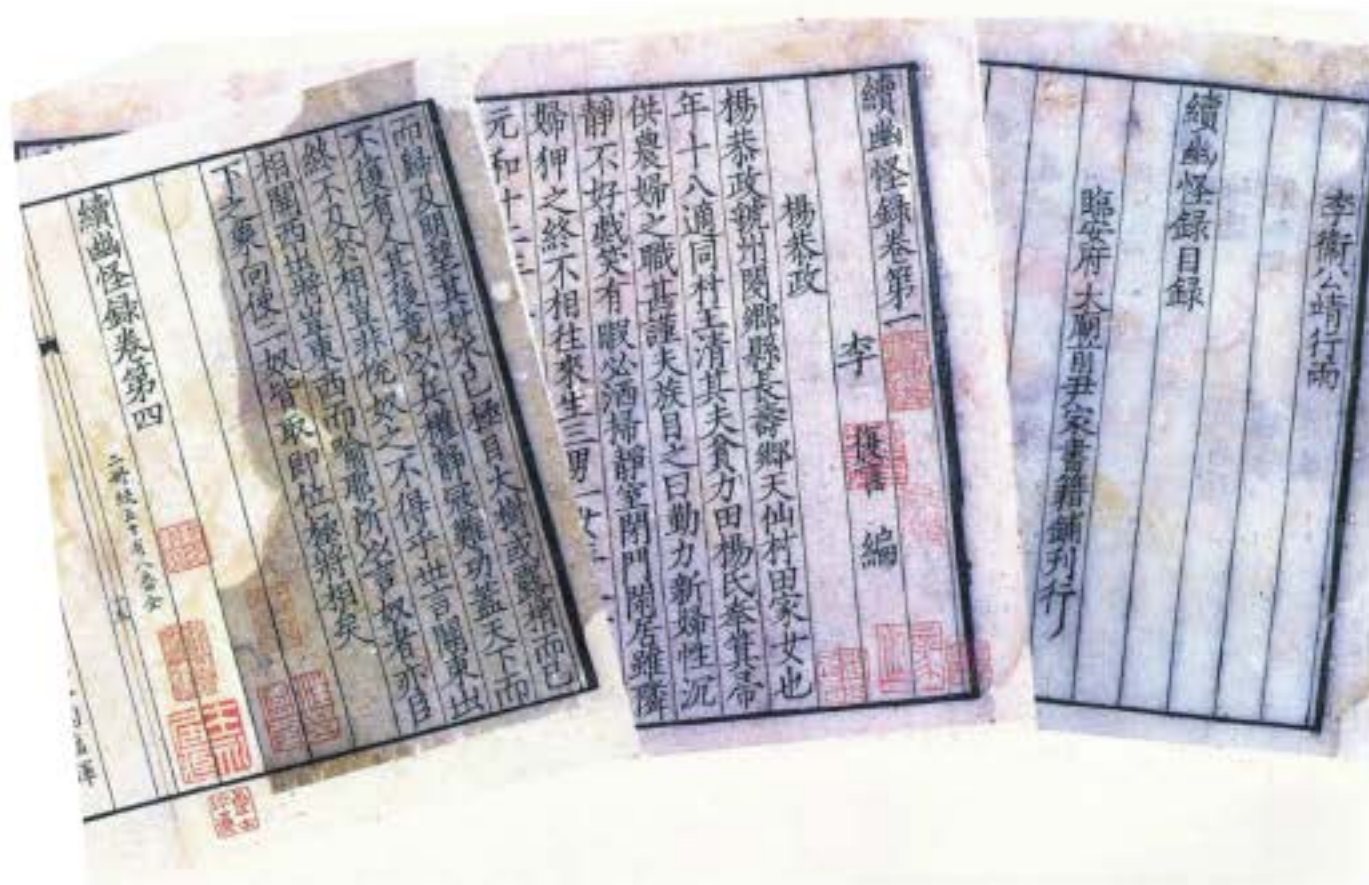 李衞公靖行雨
續幽怪録目録
臨安府太廟前尹家書籍鋪刊行
續幽怪録卷第一
李復言編
楊恭政
楊恭政虢州閿鄉縣長壽鄉天仙村田家女也
年十八適同村王清其夫貧力田楊氏奉箕帚
供農婦之職甚謹夫族目之曰勤力新婦性沉
靜不好戲笑有暇必洒掃靜室閉門閑居雖隣
婦狎之終不相往來生三男一女
元和十二
而歸及明望其
水已極目大樹或露梢而已
不復有人其後竟以兵權靜寇難功蓋天下而
然不及於相豈非悅奴之不得乎世言關東出
相關西出將豈東西而喻耶所以言奴者亦臣
下之象向使二奴皆取即位極將相矣
續幽怪録卷第四